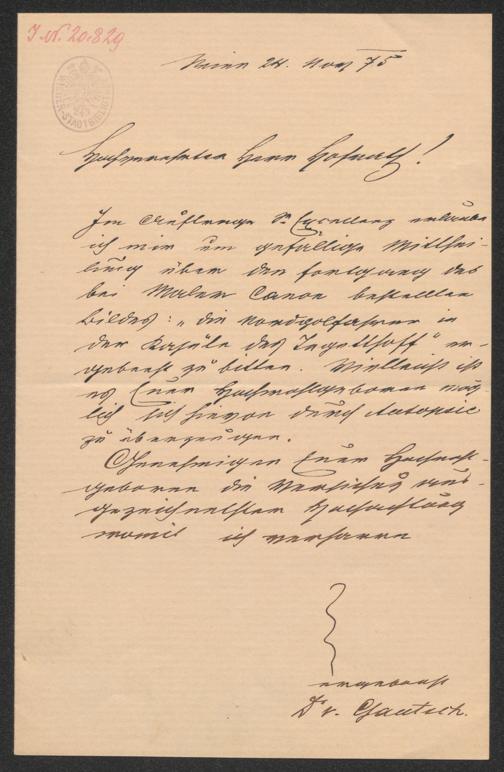 J. N. 20.829
Wien 24. Nov 75
Hochverehrter Herr Hofrath!
Im Auftrage Sr Excellenz erlaube
ich mir um gefällige Mitthei-
lung über den Fortgang des
bei Maler Canon bestellten
Bildes: „die Nordpolfahrer in
der Kajüte des Tegetthoff" er-
gebenst zu bitten. Vielleicht ist
es Euer Hochwohlgeboren mög-
lich sich hievon durch Autopsie
zu überzeugen.
Genehmigen Euer Hochwohl-
geboren die Versicherung aus-
gezeichneter Hochachtung
womit ich verharre
ergebenst
Dr v. Gautsch.